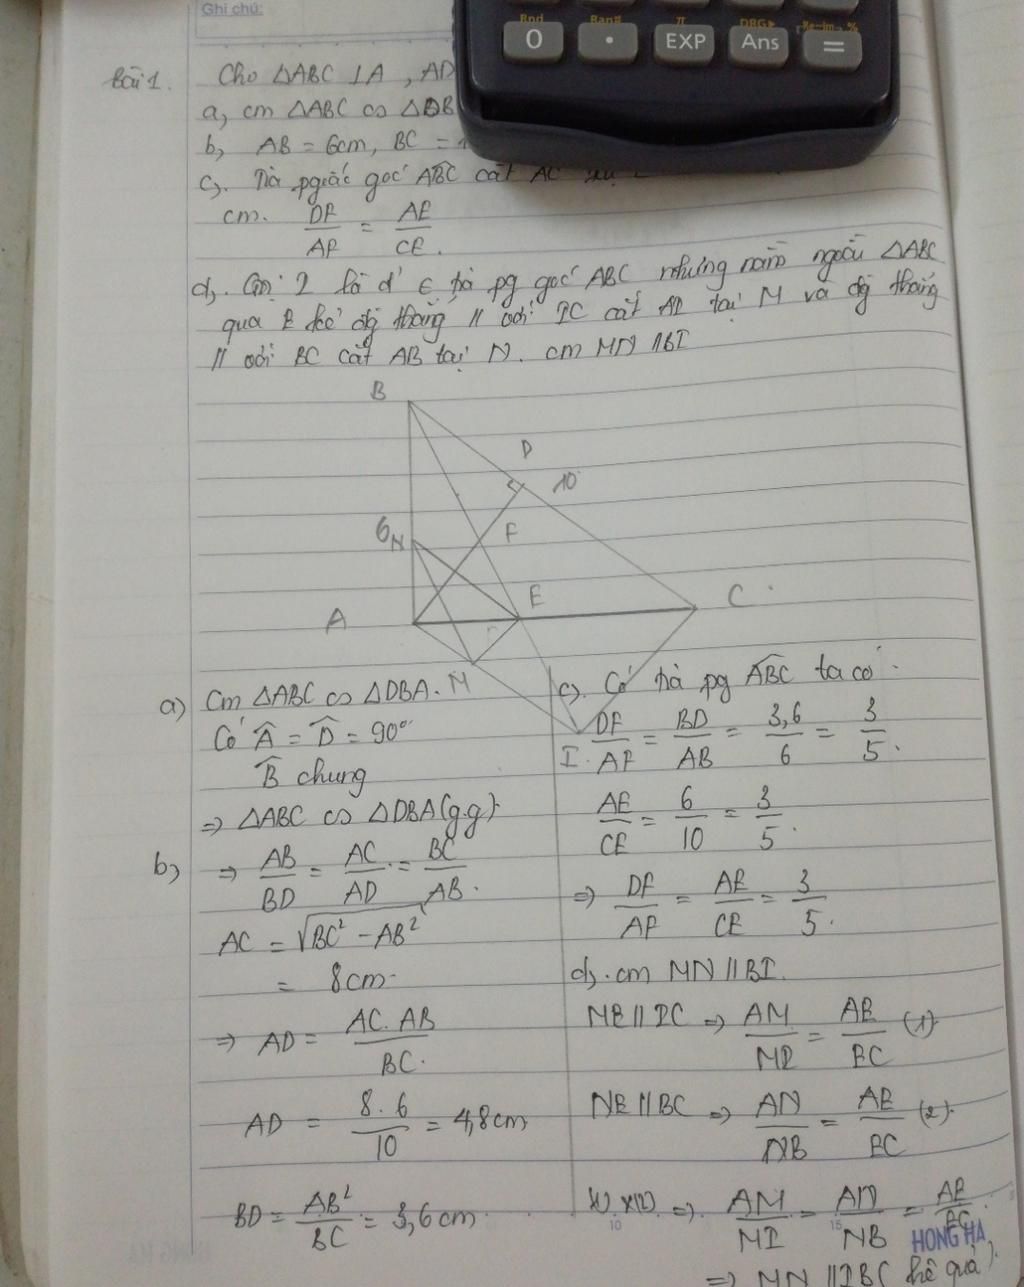 Ghi chú:
Rnd Ran# π DRG▸ %
0 · EXP Ans =
Bài 1. Cho ΔABC ⊥ A , AD
a, cm ΔABC ∽ ΔDB
b, AB = 6cm, BC =
c). Tia pgiác góc ABC cắt AC
cm. DF/AF = AE/CE.
d). Gọi I là đ' ∈ tia pg góc ABC nhưng nằm ngoài ΔABC
qua E kẻ đg thẳng // với IC cắt AI tại M và đg thẳng
// với BC cắt AB tại N. cm MN // BI
B
D
10
6
N
F
A
E
C
M
I
a) Cm ΔABC ∽ ΔDBA.
Có Â = D̂ = 90°
B̂ chung
=> ΔABC ∽ ΔDBA (g.g)
b) => AB/BD = AC/AD = BC/AB.
AC = √BC² - AB²
= 8cm
=> AD = AC. AB/BC.
AD = 8.6/10 = 4,8cm
BD = AB²/BC = 3,6cm
c). Có tia pg ABC ta có
DF/AF = BD/AB = 3,6/6 = 3/5.
AE/CE = 6/10 = 3/5.
=> DF/AF = AE/CE = 3/5.
d). cm MN // BI.
ME // IC => AM/MI = AE/EC (1)
NE // BC => AN/NB = AE/EC (2).
=> AM/MI = AN/NB = AE/EC
HONG HA
=> MN // IB